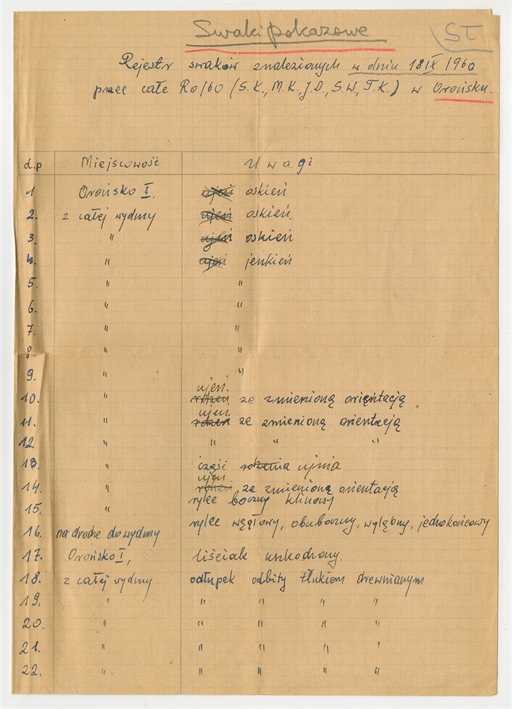 Swaki pokazowe
ST
Rejestr swaków znalezionych w dniu 18 IX 1960
przez całe Ro/60 (S.K., M.K., J.D., S.W, T.K.) w Orońsku.
d.p Miejscowość Uwagi
1 Orońsko I, ujeń oskień
2. z całej wydmy ujeń oskień
3. " ujeń oskień
4. " ujeń jenkień
5. " "
6. " "
7. " "
8. " "
9. " "
10. " rdzeń ujeń. ze zmienioną orientacją
11. " rdzeń ujeń. ze zmienioną orientacją
12. " " " "
13. " część rdzenia ujnia
14. " rdzeń ujeń. ze zmienioną orientacją
15. " rylec boczny klinowy
16. na drodze do wydmy rylec węgłowy, obuboczny, wgłębny, jednokońcowy
17. Orońsko I, liściak uszkodzony
18. z całej wydmy odłupek odbity tłukiem drewnianym
19. " " " " "
20. " " " " "
21. " " " " "
22. " " " " "